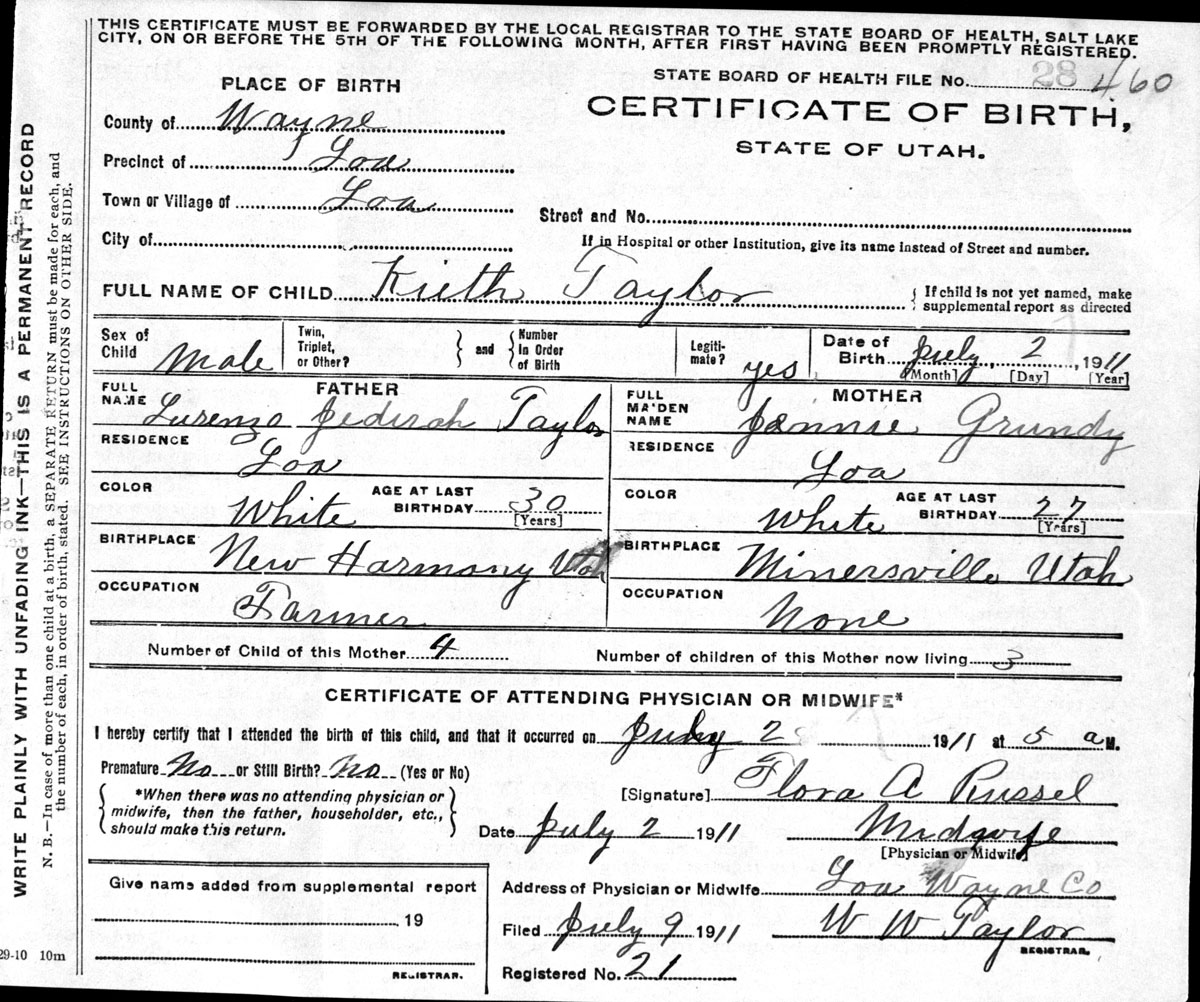 THIS CERTIFICATE MUST BE FORWARDED BY THE LOCAL REGISTRAR TO THE STATE BOARD OF HEALTH, SALT LAKE
CITY, ON OR BEFORE THE 5TH OF THE FOLLOWING MONTH, AFTER FIRST HAVING BEEN PROMPTLY REGISTERED.
STATE BOARD OF HEALTH FILE No. 28 460
PLACE OF BIRTH
CERTIFICATE OF BIRTH,
STATE OF UTAH.
County of Wayne
Precinct of Loa
Town or Village of Loa
Street and No.
City of
If in Hospital or other Institution, give its name instead of Street and number.
FULL NAME OF CHILD Kieth Taylor
{ If child is not yet named, make
supplemental report as directed
Sex of
Child Male
Twin,
Triplet,
or Other?
} and { Number
In Order
of Birth
Legiti-
mate? yes
Date of
Birth July 2, 1911
[Month] [Day] [Year]
FATHER
FULL
NAME Lurenzo Jediah Taylor
RESIDENCE
Loa
COLOR
White
AGE AT LAST
BIRTHDAY 30
[Years]
BIRTHPLACE
New Harmony Utah
OCCUPATION
Farmer
MOTHER
FULL
MAIDEN
NAME Jennie Grundy
RESIDENCE
Loa
COLOR
White
AGE AT LAST
BIRTHDAY 27
[Years]
BIRTHPLACE
Minersville Utah
OCCUPATION
None
Number of Child of this Mother 4
Number of children of this Mother now living 3
CERTIFICATE OF ATTENDING PHYSICIAN OR MIDWIFE*
I hereby certify that I attended the birth of this child, and that it occurred on July 2 1911 at 5 a M.
Premature No or Still Birth? No (Yes or No)
{ *When there was no attending physician or
midwife, then the father, householder, etc.,
should make this return. }
[Signature] Flora A Russel
Date July 2 1911 Midwife
[Physician or Midwife]
Give name added from supplemental report
19
REGISTRAR.
Address of Physician or Midwife Loa Wayne Co
Filed July 9 1911 W W Taylor
REGISTRAR.
Registered No. 21
29-10 10m
WRITE PLAINLY WITH UNFADING INK—THIS IS A PERMANENT RECORD
N. B.—In case of more than one child at a birth, a SEPARATE RETURN must be made for each, and
the number of each, in order of birth, stated. SEE INSTRUCTIONS ON OTHER SIDE.